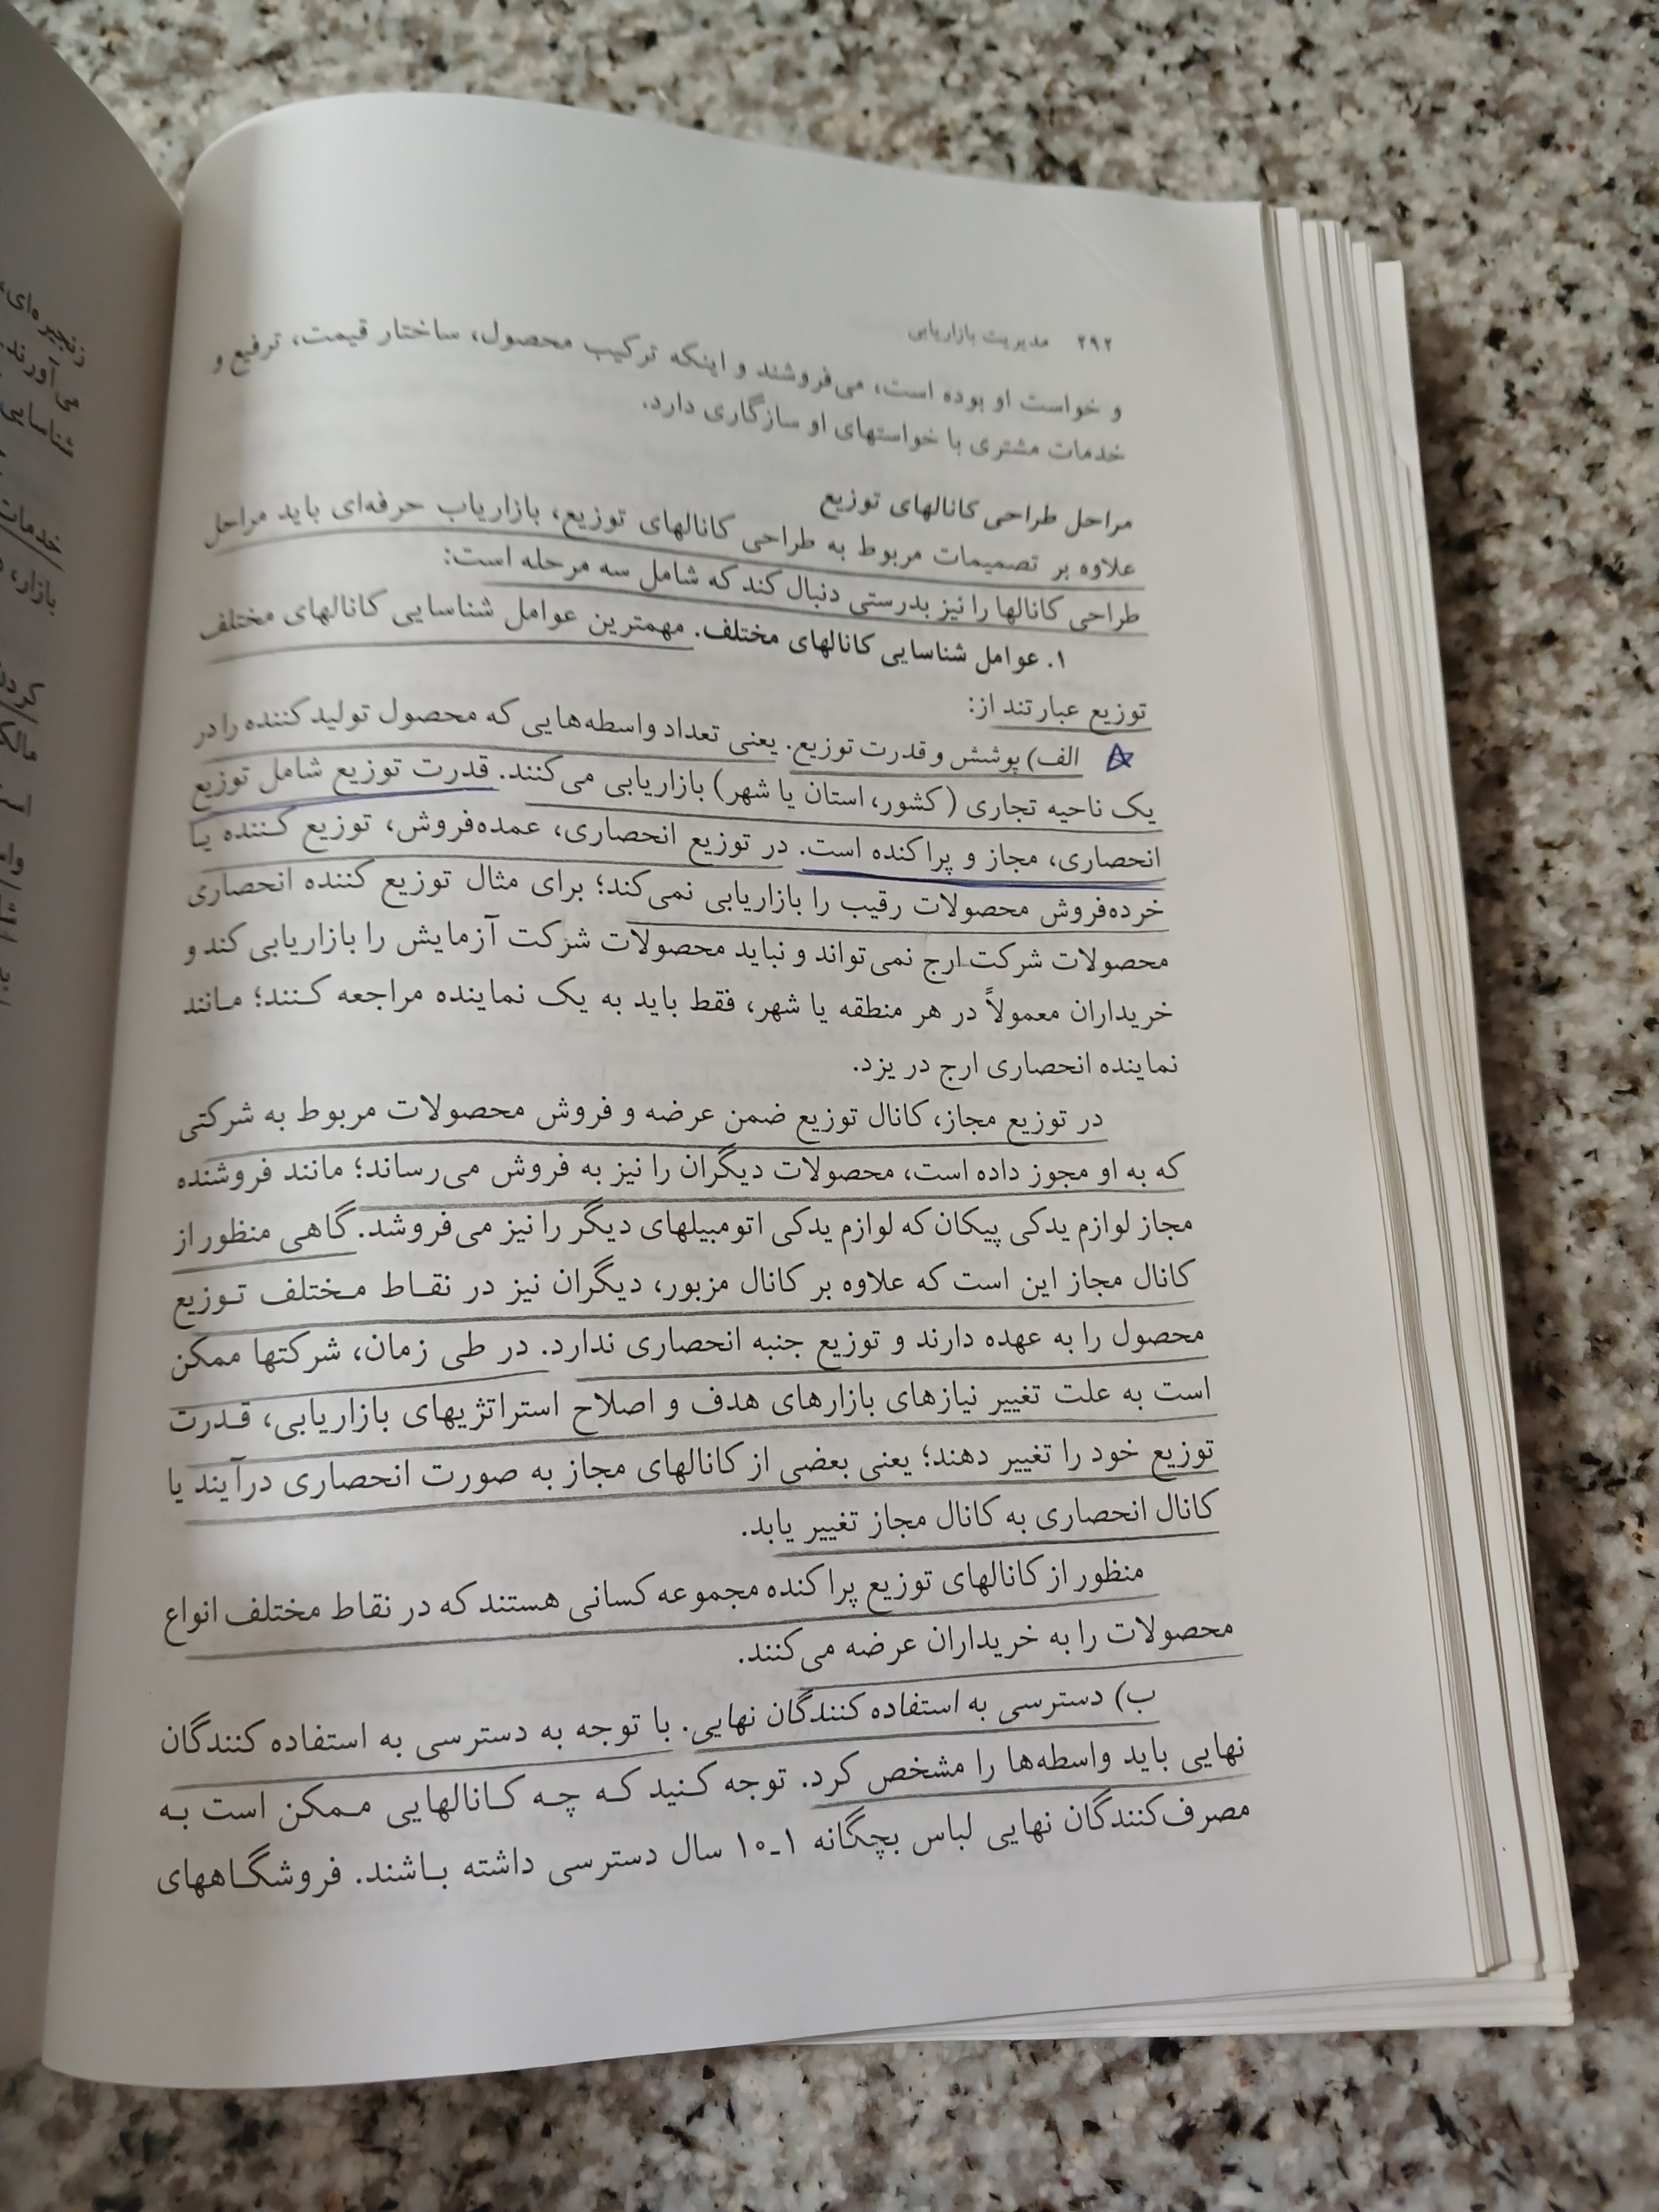 ۲۹۲ مدیریت بازاریابی
و خواست او بوده است، می‌فروشند و اینکه ترکیب محصول، ساختار قیمت، ترفیع و
خدمات مشتری با خواستهای او سازگاری دارد.
مراحل طراحی کانالهای توزیع
علاوه بر تصمیمات مربوط به طراحی کانالهای توزیع، بازاریاب حرفه‌ای باید مراحل
طراحی کانالها را نیز بدرستی دنبال کند که شامل سه مرحله است:
۱. عوامل شناسایی کانالهای مختلف. مهمترین عوامل شناسایی کانالهای مختلف
توزیع عبارتند از:
الف) پوشش و قدرت توزیع. یعنی تعداد واسطه‌هایی که محصول تولیدکننده را در
یک ناحیه تجاری (کشور، استان یا شهر) بازاریابی می‌کنند. قدرت توزیع شامل توزیع
انحصاری، مجاز و پراکنده است. در توزیع انحصاری، عمده‌فروش، توزیع کننده یا
خرده‌فروش محصولات رقیب را بازاریابی نمی‌کند؛ برای مثال توزیع کننده انحصاری
محصولات شرکت ارج نمی‌تواند و نباید محصولات شرکت آزمایش را بازاریابی کند و
خریداران معمولاً در هر منطقه یا شهر، فقط باید به یک نماینده مراجعه کنند؛ مانند
نماینده انحصاری ارج در یزد.
در توزیع مجاز، کانال توزیع ضمن عرضه و فروش محصولات مربوط به شرکتی
که به او مجوز داده است، محصولات دیگران را نیز به فروش می‌رساند؛ مانند فروشنده
مجاز لوازم یدکی پیکان که لوازم یدکی اتومبیلهای دیگر را نیز می‌فروشد. گاهی منظور از
کانال مجاز این است که علاوه بر کانال مزبور، دیگران نیز در نقاط مختلف توزیع
محصول را به عهده دارند و توزیع جنبه انحصاری ندارد. در طی زمان، شرکتها ممکن
است به علت تغییر نیازهای بازارهای هدف و اصلاح استراتژیهای بازاریابی، قدرت
توزیع خود را تغییر دهند؛ یعنی بعضی از کانالهای مجاز به صورت انحصاری درآیند یا
کانال انحصاری به کانال مجاز تغییر یابد.
منظور از کانالهای توزیع پراکنده مجموعه کسانی هستند که در نقاط مختلف انواع
محصولات را به خریداران عرضه می‌کنند.
ب) دسترسی به استفاده کنندگان نهایی. با توجه به دسترسی به استفاده کنندگان
نهایی باید واسطه‌ها را مشخص کرد. توجه کنید که چه کانالهایی ممکن است به
مصرف‌کنندگان نهایی لباس بچگانه ۱ـ۱۰ سال دسترسی داشته باشند. فروشگاههای
زنجیره‌ای،
می‌آورند.
شناسایی
خدمات
بازار،